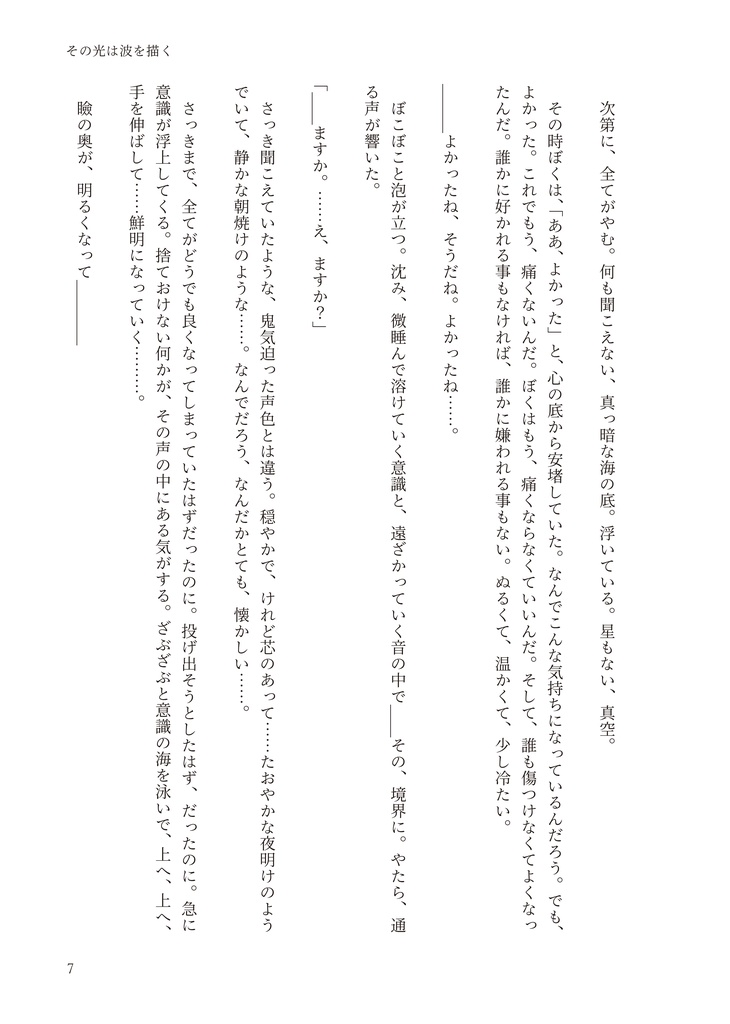 その光は波を描く
次第に、全てがやむ。何も聞こえない、真っ暗な海の底。浮いている。星もない、真空。
その時ぼくは、「ああ、よかった」と、心の底から安堵していた。なんでこんな気持ちになっているんだろう。でも、
よかった。これでもう、痛くないんだ。ぼくはもう、痛くならなくていいんだ。そして、誰も傷つけなくてよくなっ
たんだ。誰かに好かれる事もなければ、誰かに嫌われる事もない。ぬるくて、温かくて、少し冷たい。
―――よかったね、そうだね。よかったね……。
ぼこぼこと泡が立つ。沈み、微睡んで溶けていく意識と、遠ざかっていく音の中で――その、境界に。やたら、通
る声が響いた。
「――ますか。……え、ますか？」
さっき聞こえていたような、鬼気迫った声色とは違う。穏やかで、けれど芯のあって……たおやかな夜明けのよう
でいて、静かな朝焼けのような……。なんでだろう、なんだかとても、懐かしい……。
さっきまで、全てがどうでも良くなってしまっていたはずだったのに。投げ出そうとしたはず、だったのに。急に
意識が浮上してくる。捨ておけない何かが、その声の中にある気がする。ざぶざぶと意識の海を泳いで、上へ、上へ、
手を伸ばして……鮮明になっていく………。
瞼の奥が、明るくなって――――
7